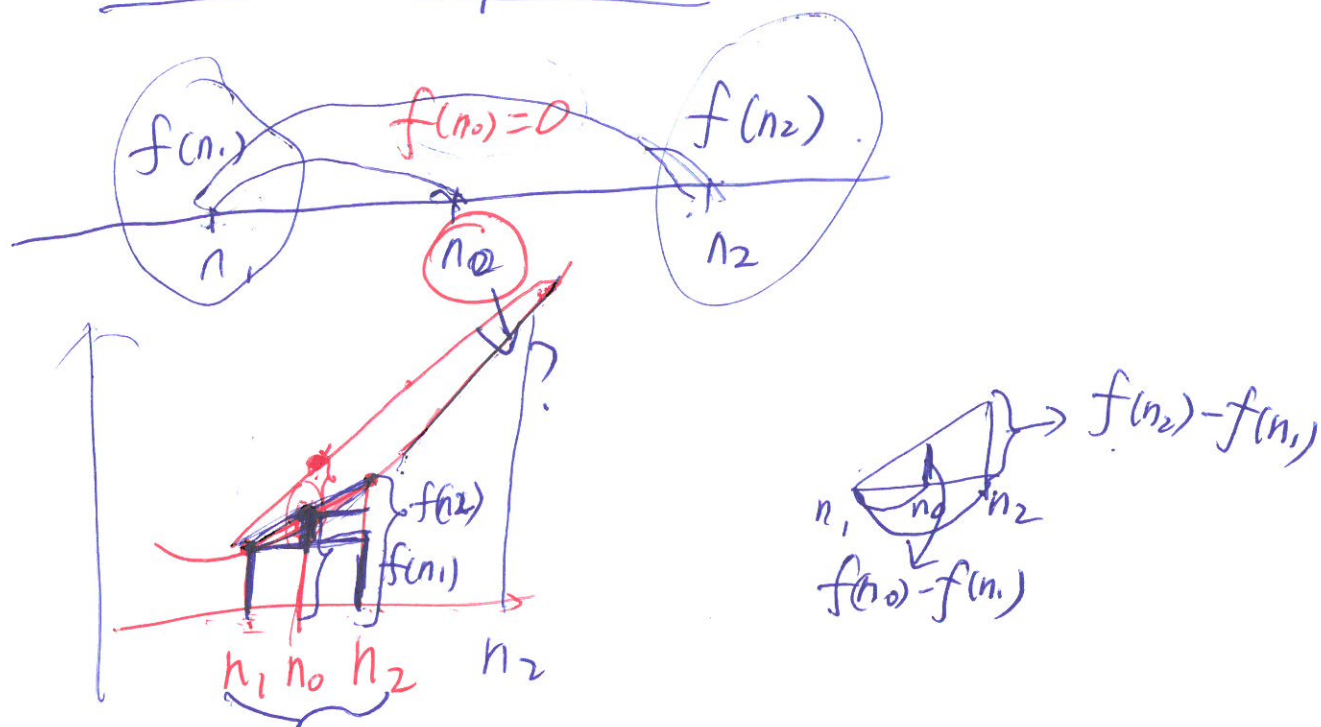 f(n₁) f(n₀)=0 f(n₂)
n₁ n₂
?
f(n₂)
f(n₁)
n₁ n₀ n₂ n₂
f(n₂)-f(n₁)
n₁ n₀ n₂
f(n₀)-f(n₁)